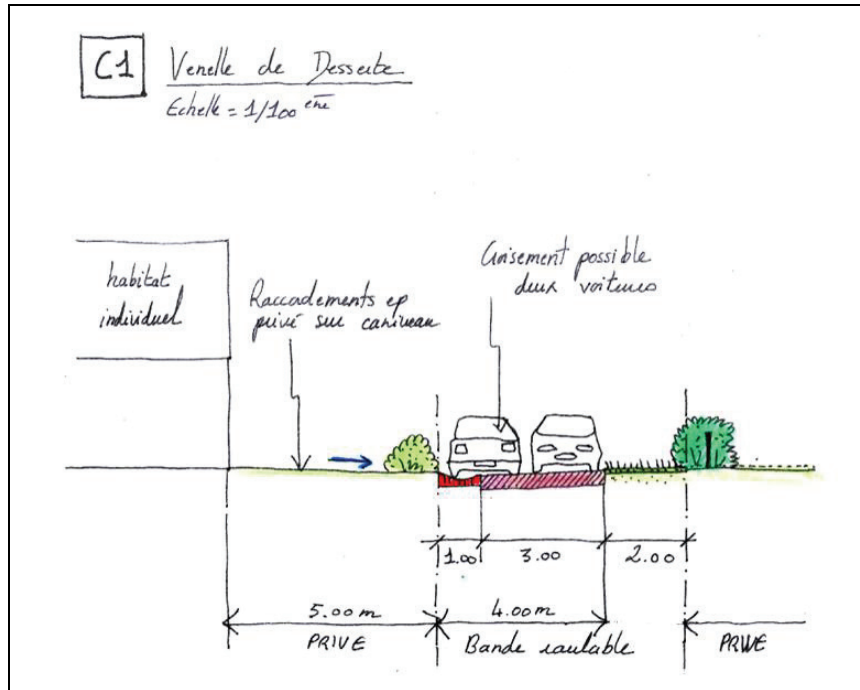 C1 Venelle de Desserte
Echelle = 1/100 ème
habitat
individuel
Raccordements ep
privé sur caniveau
Croisement possible
deux voitures
1.00 3.00 2.00
5.00 m 4.00 m
PRIVE Bande roulable PRIVE